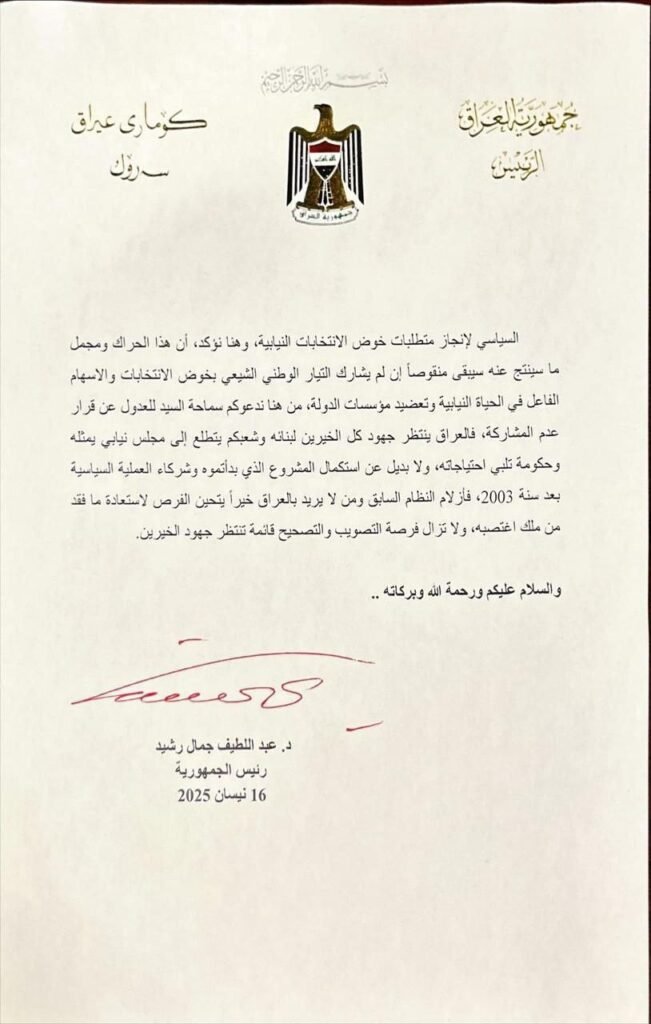 بسم الله الرحمن الرحيم
جمهورية العراق
الرئيس
كوماری عیراق
سەروك
جمهورية العراق
السياسي لإنجاز متطلبات خوض الانتخابات النيابية، وهنا نؤكد، أن هذا الحراك ومجمل
ما سينتج عنه سيبقى منقوصاً إن لم يشارك التيار الوطني الشيعي بخوض الانتخابات والاسهام
الفاعل في الحياة النيابية وتعضيد مؤسسات الدولة، من هنا ندعوكم سماحة السيد للعدول عن قرار
عدم المشاركة، فالعراق ينتظر جهود كل الخيرين لبنائه وشعبكم يتطلع إلى مجلس نيابي يمثله
وحكومة تلبي احتياجاته، ولا بديل عن استكمال المشروع الذي بدأتموه وشركاء العملية السياسية
بعد سنة 2003، فأزلام النظام السابق ومن لا يريد بالعراق خيراً يتحين الفرص لاستعادة ما فقد
من ملك اغتصبه، ولا تزال فرصة التصويب والتصحيح قائمة تنتظر جهود الخيرين.
والسلام عليكم ورحمة الله وبركاته ..
د. عبد اللطيف جمال رشيد
رئيس الجمهورية
16 نيسان 2025